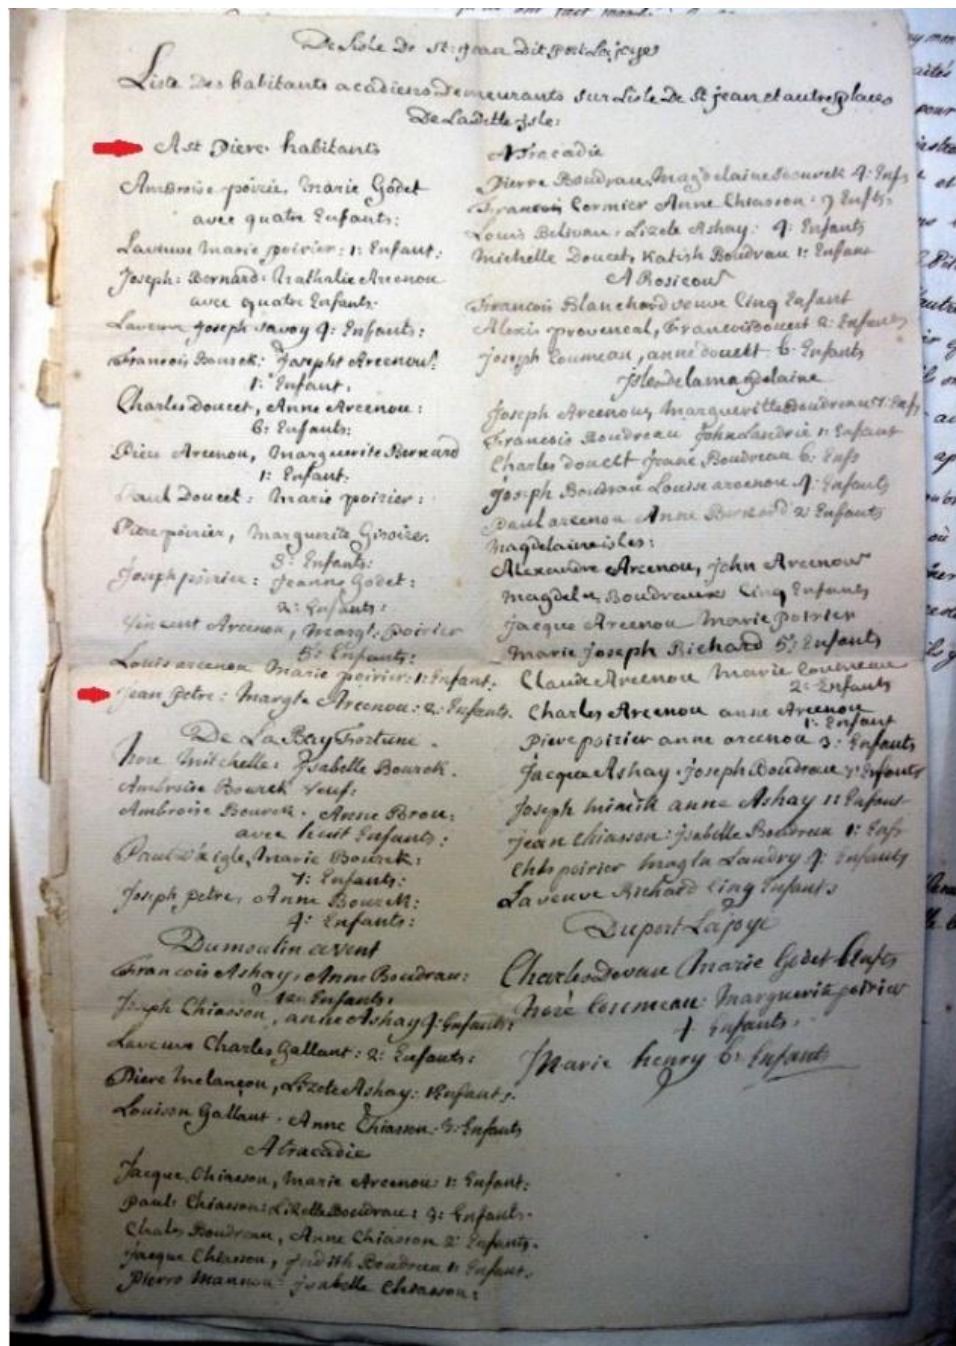 De Lisle De St: jean Dit Port Lajoye
Liste Des habitants acadiens Demeurants sur Lisle De St jean et autres places
De Laditte isle:
A st Piere habitants
Ambroise poirie, Marie Godet
avec quatre Enfants:
Laveuve Marie poirier: 1: Enfant:
Joseph: Bernard: Nathalie Arcenou
avec quatre Enfants:
Laveuve Joseph Savoy 4: Enfants:
François Bourck: Josepht Arcenou:
1: Enfant:
Charles Doucet, Anne Arcenou:
6: Enfants:
Piere Arcenou, Marguerite Bernard
1: Enfant:
Paul Doucet: Marie poirier:
Piere poirier, Marguerite Giroire:
3: Enfants:
Joseph poirier: Jeanne Godet:
2: Enfants:
Vincent Arcenou, Margt: poirier
5: Enfants:
Louis arcenou Marie poirier: 1: Enfant:
jean Petre: Margte Arcenou: 2: Enfants.
De La Bay Fortune.
Nore Mitchelle: Isabelle Bourck.
Ambroise Bourck veuf:
Ambroise Bourck. Anne Brou:
avec huit Enfants:
Paul Daigle, Marie Bourck:
7: Enfants:
Joseph petre, Anne Bourck:
4: Enfants:
Dumoulin avent
François Ashay, Anne Boudrau:
Enfants:
Joseph Chiasson, anne Ashay 4: Enfants:
Laveuve Charles Gallant: 2: Enfants:
Piere Melançon, Lizete Ashay: 1 Enfant:
Louison Gallant. Anne Chiasson. 3: Enfants
A tracadie
Jacque Chiasson, Marie Arcenou 1: Enfant:
Paul Chiasson: Lizelle Boudrau: 3: Enfants.
Chales Boudreau, Anne Chiasson 2: Enfants.
Jacque Chiasson, Judith Boudreau 1: Enfant.
Pierro Mannou isabelle Chiasson:
A Tracadie
Pierre Boudrau, Magdelaine Bourck 4: Enfs
François Cormier Anne Chiasson. 7 Enfts.
Louis Belivau: Lizele Ashay: 4: Enfants
Michelle Doucet, Katish Boudrau 1: Enfant
A Rosicou
François Blanchard veuve Cinq Enfant
Alexis provencal, François Doucet 2: Enfants
joseph Coumeau, anne doucett 6 Enfants
jsles de la magdelaine
Joseph Arcenou, Margueritte Boudreau Enfs
François Boudreau John Landrie 1: Enfant
Charles doucett Jeane Boudreau 6: Enfs
joseph Boudrau Louise arcenou 4: Enfants
Paul arcenou Anne Bernard 2: Enfants
Magdelaine isles:
Alexandre Arcenou, john Arcenou
Magdeln Boudreaux Cinq Enfants
jacque Arcenou Marie Poirier
Marie joseph Richard 5: Enfants
Claude Arcenou Marie Coumeau
2: Enfants
Charles Arcenou anne Arcenou
1: Enfant
Piere poirier anne arcenou 3: Enfants
Jacque Ashay. joseph Boudrau Enfants
Joseph anne Ashay 1: Enfant
jean Chiasson: jsabelle Boudreau 1: Enfs
Chls poirier Magln Landry 4: Enfants
Laveuve Richard Cinq Enfants
Du port La joye
Charles Marie Godet 6 Enfts
Noré Coumeau: Marguerite poirier
4 Enfants.
Marie henry 6: Enfants